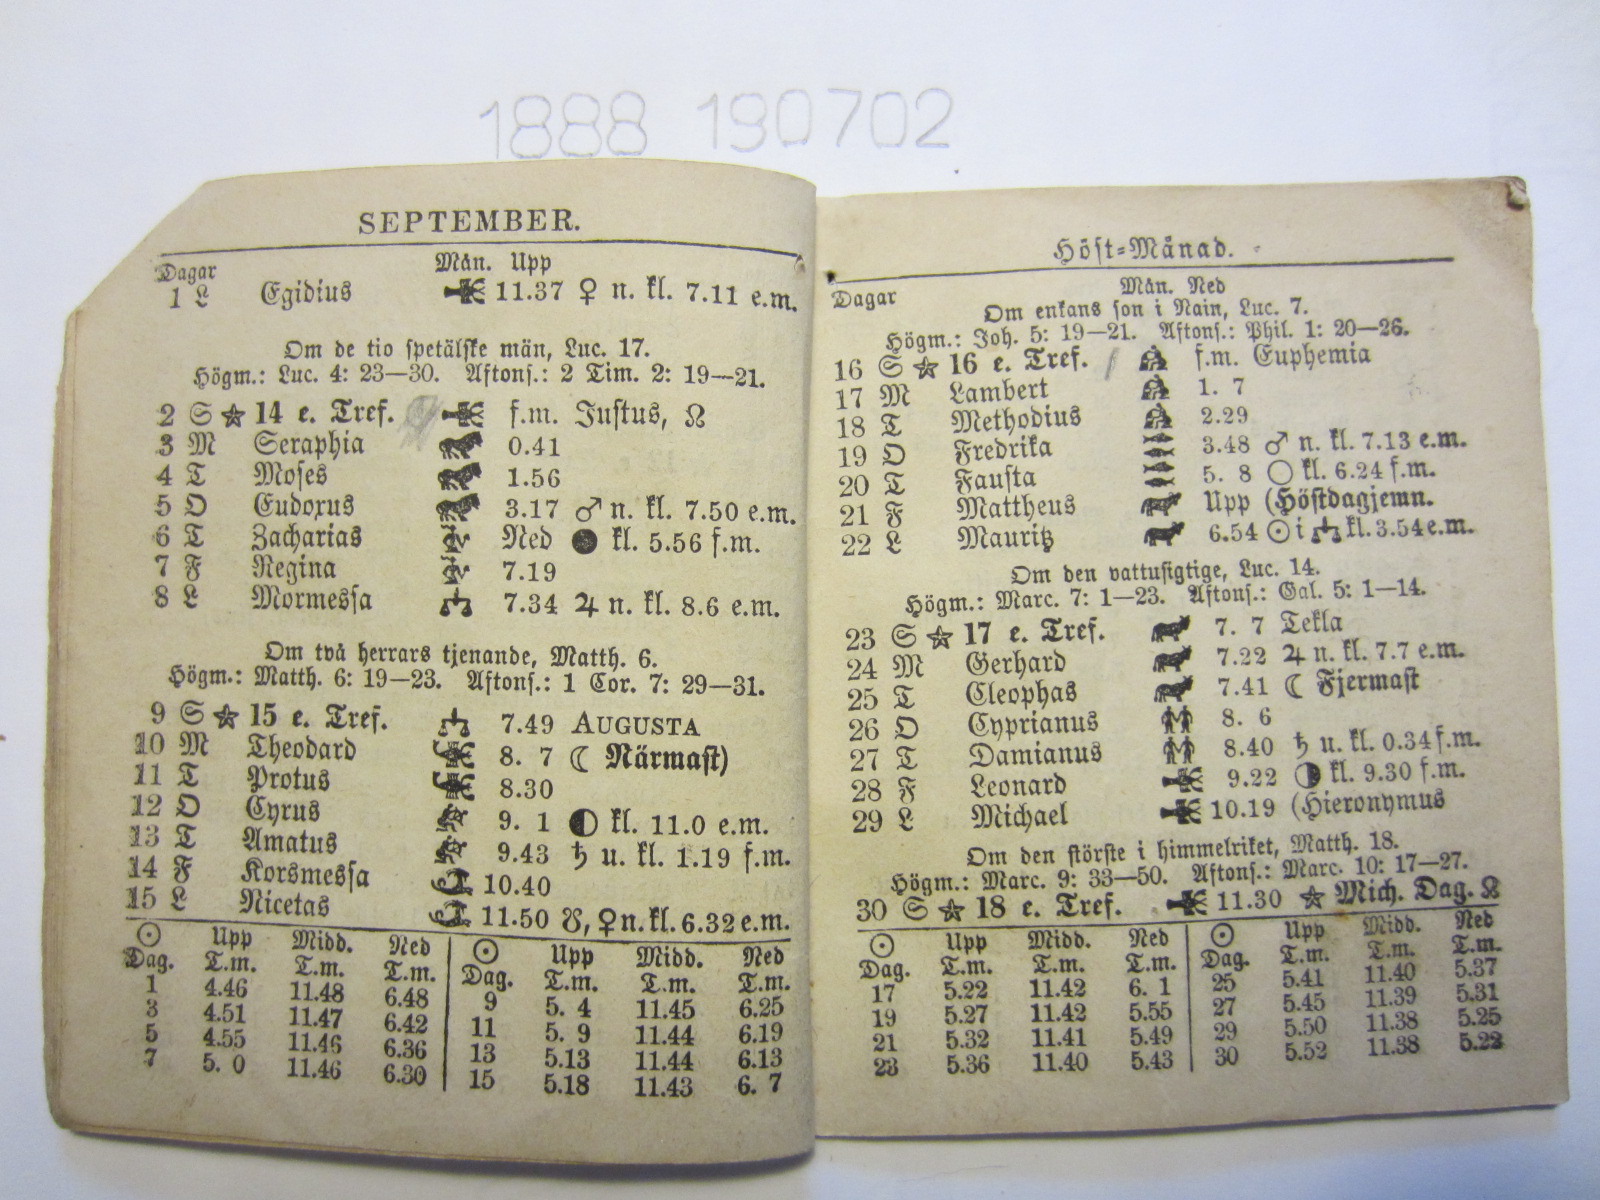 1888 190702
SEPTEMBER.
Dagar Mån. Upp
1 L Egidius 11.37 ♀ n. kl. 7.11 e.m.
Om de tio spetälske män, Luc. 17.
Högm.: Luc. 4: 23—30. Aftons.: 2 Tim. 2: 19—21.
2 S ☆ 14 e. Tref. f.m. Justus, ☊
3 M Seraphia ♌ 0.41
4 T Moses ♌ 1.56
5 O Eudoxus ♌ 3.17 ♂ n. kl. 7.50 e.m.
6 T Zacharias ♍ Ned ● kl. 5.56 f.m.
7 F Regina ♍ 7.19
8 L Mormessa ♎ 7.34 ♃ n. kl. 8.6 e.m.
Om två herrars tjenande, Matth. 6.
Högm.: Matth. 6: 19—23. Aftons.: 1 Cor. 7: 29—31.
9 S ☆ 15 e. Tref. ♎ 7.49 AUGUSTA
10 M Theodard ♏ 8. 7 ☾ Närmast)
11 T Protus ♏ 8.30
12 O Cyrus ♐ 9. 1 ◐ kl. 11.0 e.m.
13 T Amatus ♐ 9.43 ♄ u. kl. 1.19 f.m.
14 F Korsmessa ♑ 10.40
15 L Nicetas ♑ 11.50 ☋, ♀ n. kl. 6.32 e.m.
☉ Upp Midd. Ned ☉ Upp Midd. Ned
Dag. T.m. T.m. T.m. Dag. T.m. T.m. T.m.
1 4.46 11.48 6.48 9 5. 4 11.45 6.25
3 4.51 11.47 6.42 11 5. 9 11.44 6.19
5 4.55 11.46 6.36 13 5.13 11.44 6.13
7 5. 0 11.46 6.30 15 5.18 11.43 6. 7
Höst-Månad.
Dagar Mån. Ned
Om enkans son i Nain, Luc. 7.
Högm.: Joh. 5: 19—21. Aftons.: Phil. 1: 20—26.
16 S ☆ 16 e. Tref. ♒ f.m. Euphemia
17 M Lambert ♒ 1. 7
18 T Methodius ♒ 2.29
19 O Fredrika ♓ 3.48 ♂ n. kl. 7.13 e.m.
20 T Fausta ♓ 5. 8 ○ kl. 6.24 f.m.
21 F Mattheus ♈ Upp (Höstdagjemn.
22 L Mauritz 6.54 ☉ i ♎ kl. 3.54 e.m.
Om den vattusigtige, Luc. 14.
Högm.: Marc. 7: 1—23. Aftons.: Gal. 5: 1—14.
23 S ☆ 17 e. Tref. ♉ 7. 7 Tekla
24 M Gerhard ♉ 7.22 ♃ n. kl. 7.7 e.m.
25 T Cleophas ♉ 7.41 ☾ Fjermast
26 O Cyprianus ♊ 8. 6
27 T Damianus ♊ 8.40 ♄ u. kl. 0.34 f.m.
28 F Leonard ♋ 9.22 ◑ kl. 9.30 f.m.
29 L Michael ♋ 10.19 (Hieronymus
Om den störste i himmelriket, Matth. 18.
Högm.: Marc. 9: 33—50. Aftons.: Marc. 10: 17—27.
30 S ☆ 18 e. Tref. ♋ 11.30 ☆ Mich. Dag. ☊
☉ Upp Midd. Ned ☉ Upp Midd. Ned
Dag. T.m. T.m. T.m. Dag. T.m. T.m. T.m.
17 5.22 11.42 6. 1 25 5.41 11.40 5.37
19 5.27 11.42 5.55 27 5.45 11.39 5.31
21 5.32 11.41 5.49 29 5.50 11.38 5.25
23 5.36 11.40 5.43 30 5.52 11.38 5.22